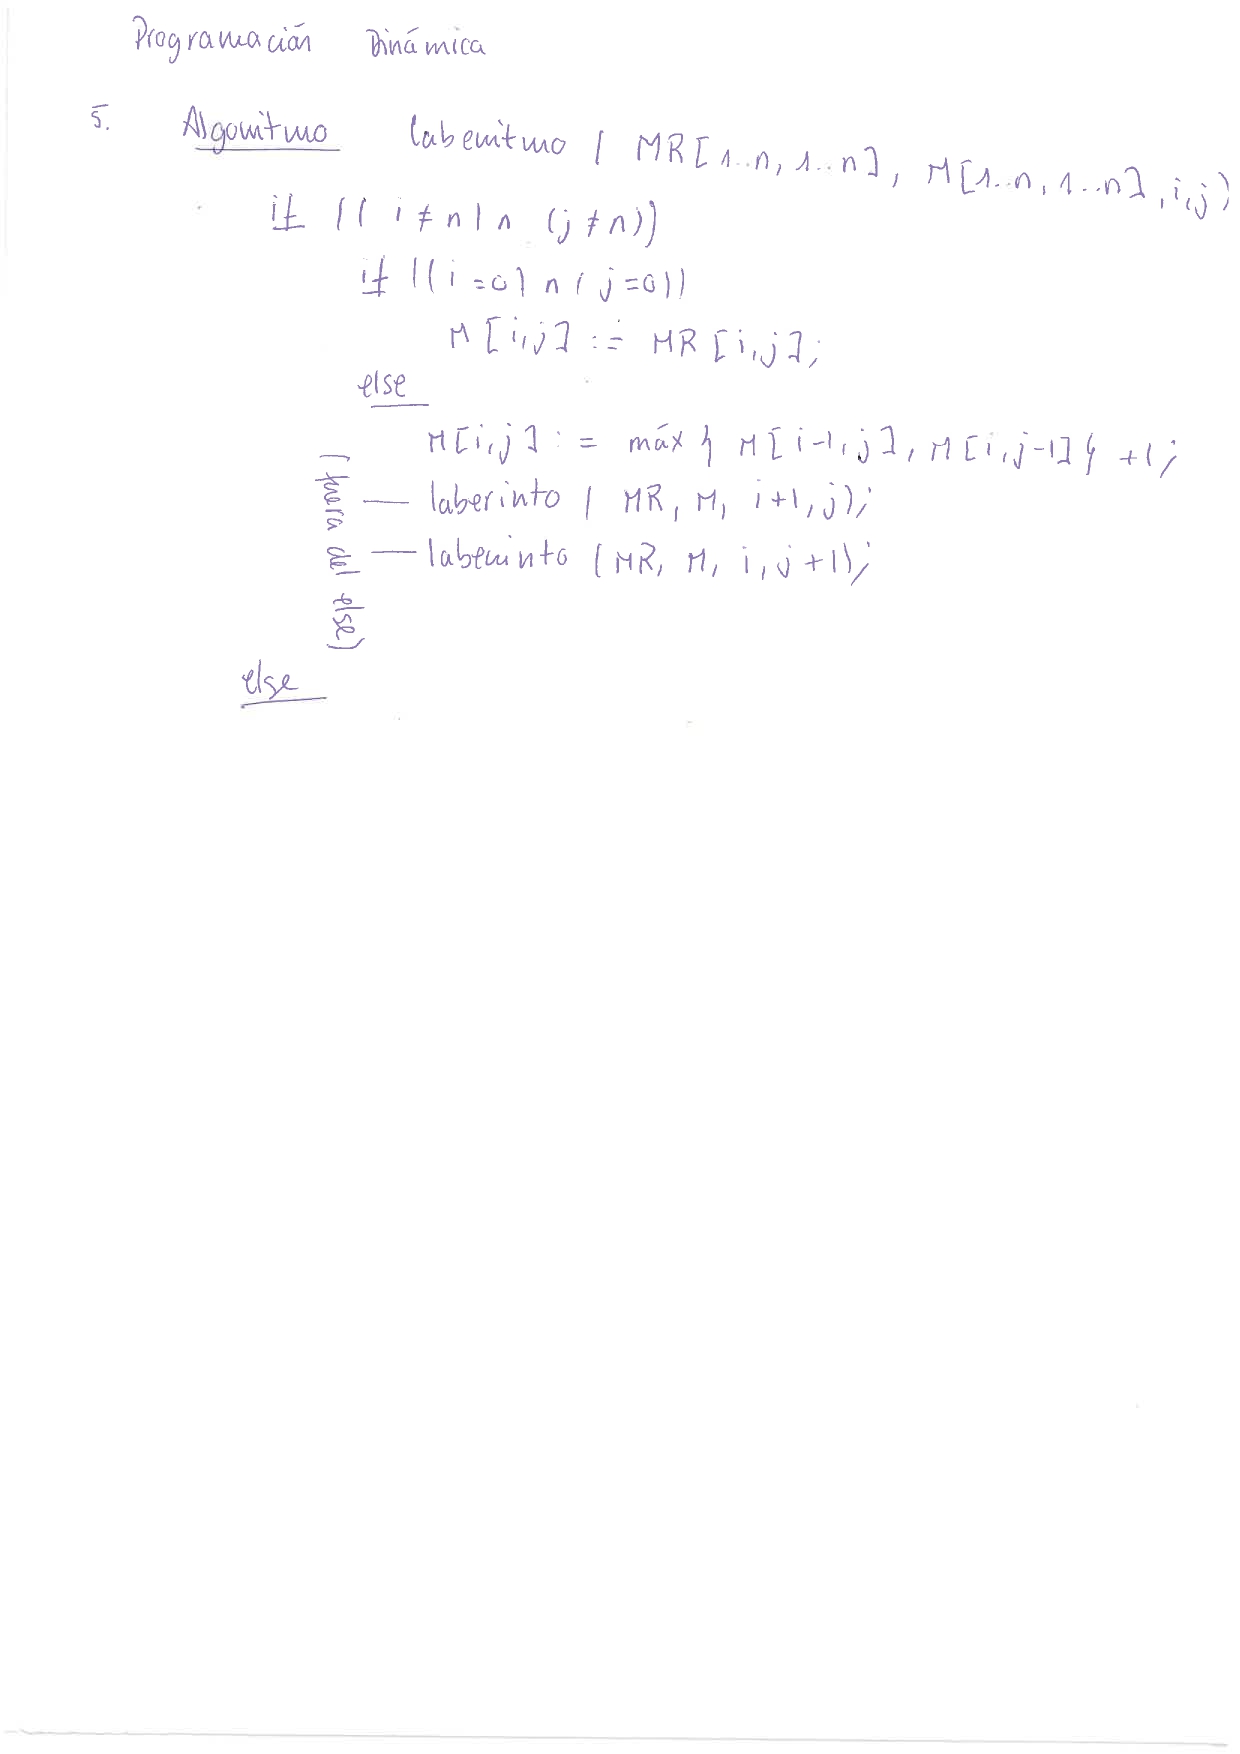 Programación Dinámica
5. Algoritmo laberinto ( MR[1..n, 1..n], M[1..n, 1..n], i,j)
if ((i ≠ n) ∧ (j ≠ n))
if ((i=0) ∧ (j=0))
M[i,j] := MR[i,j];
else
M[i,j] := máx { M[i-1,j], M[i,j-1] } +1;
— laberinto ( MR, M, i+1, j);
— laberinto (MR, M, i, j+1);
(fuera del else)
else